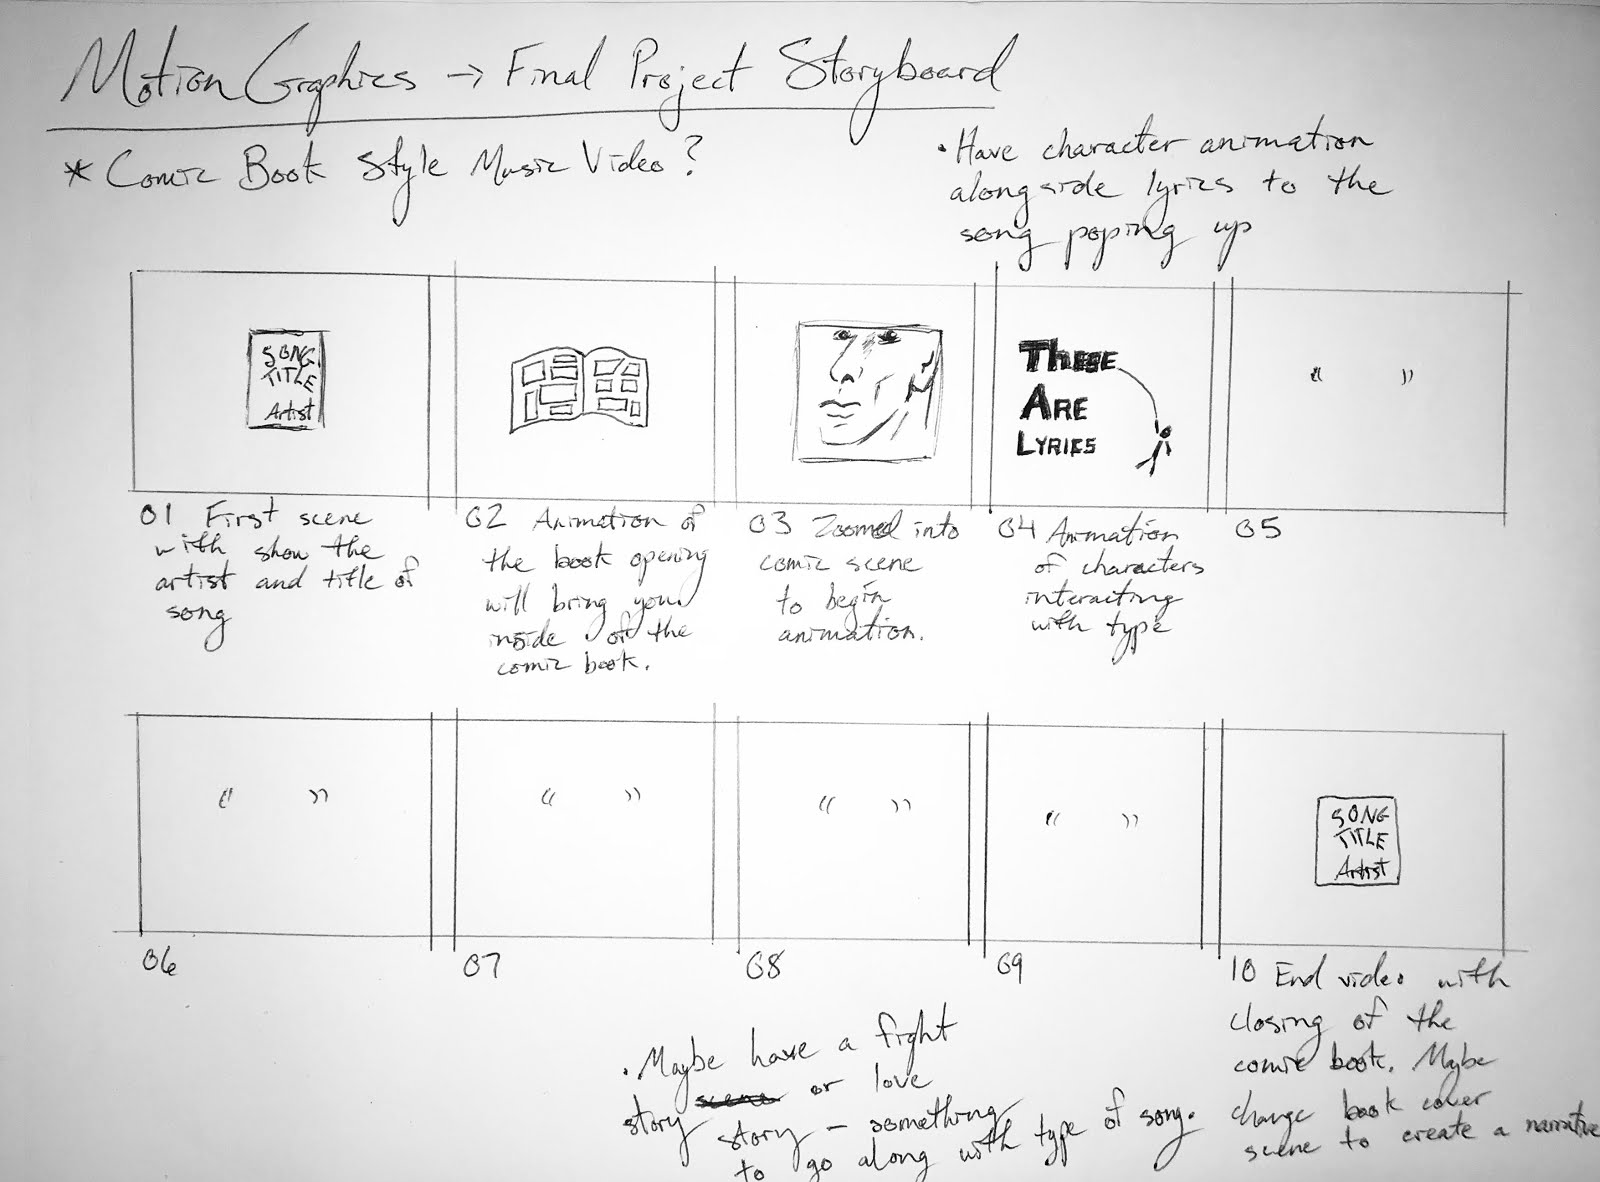 Motion Graphics → Final Project Storyboard
* Comic Book Style Music Video?
• Have character animation
alongside lyrics to the
song poping up
SONG
TITLE
Artist
THESE
ARE
LYRICS
“ ”
01 First scene
with show the
artist and title of
song
02 Animation of
the book opening
will bring you
inside of the
comic book.
03 Zoomed into
comic scene
to begin
animation.
04 Animation
of characters
interacting
with type
05
“ ”
“ ”
“ ”
“ ”
SONG
TITLE
Artist
06
07
08
09
10 End video with
closing of the
comic book. Maybe
change book cover
scene to create a narrative
• Maybe have a fight
story scene or love
story – something
to go along with type of song.